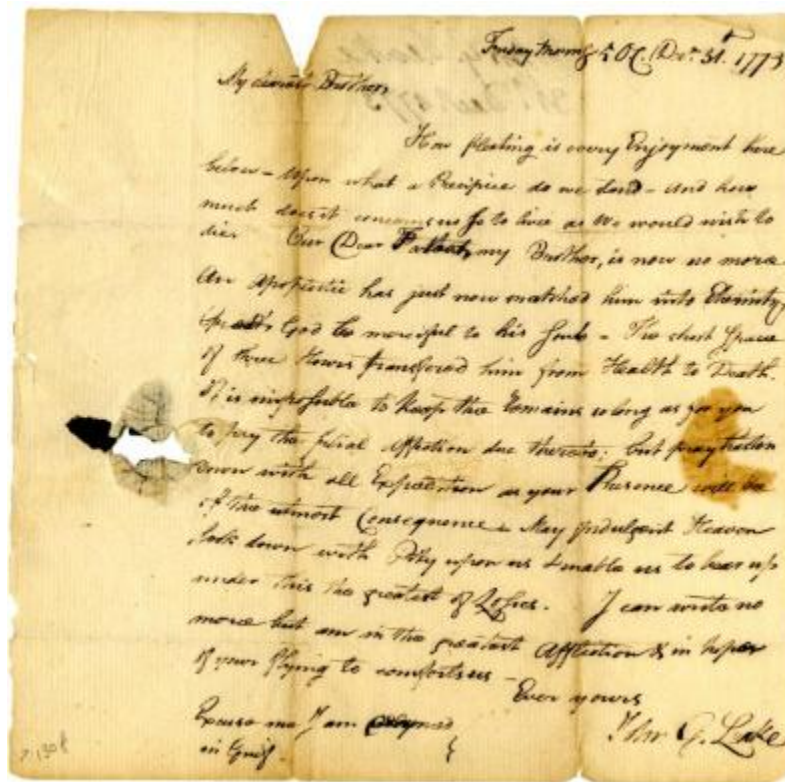 Friday Morng 5 OC. Decr. 31st. 1773
My dearest Brother
How fleeting is every Enjoyment here
below - Upon what a Precipice do we stand - and how
much does it concern us so to live as we would wish to
die. Our Dear Father, my Brother, is now no more
An Apoplectic has just now snatched him into Eternity,
God be merciful to his Soul - The short space
of three Hours transfered him from Health to Death.
It is impossible to keep the Remains so long as for you
to pay the filial Affection due thereto; but pray hasten
down with all Expedition as your Presence will be
of the utmost Consequence - May indulgent Heaven
look down with Pity upon us & enable us to bear up
under this the greatest of Losses. I can write no
more but am in the greatest Affliction & in hopes
of your flying to comfort us -
Ever yours
John G. Leake
Excuse me I am
in Grief.